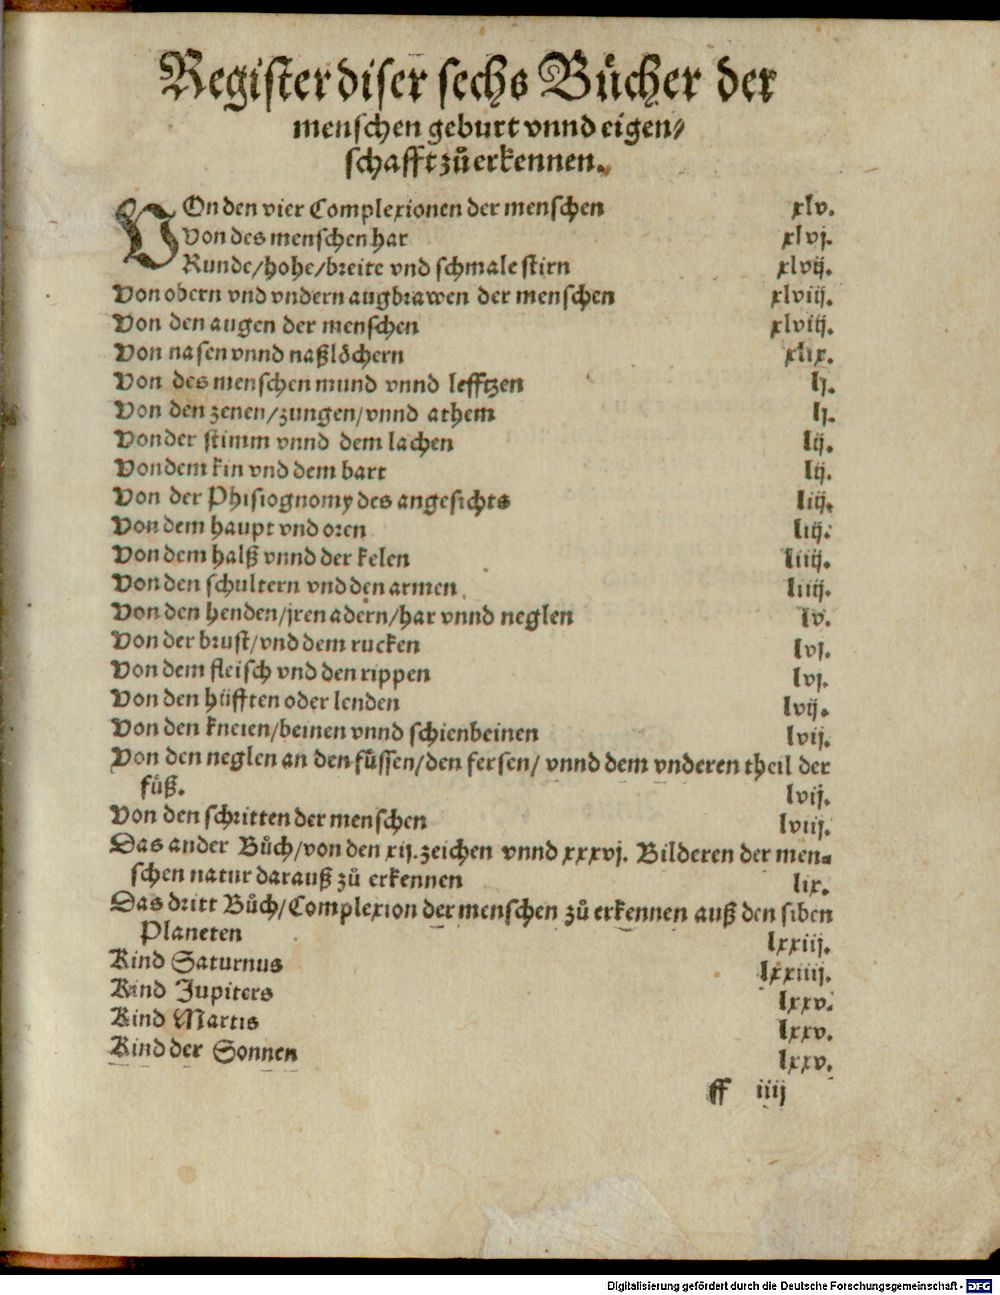 Register diser sechs Bůcher der
menschen geburt vnnd eigen⸗
schafft zůerkennen.
VOn den vier Complexionen der menschen xlv.
Von des menschen har xlvj.
Runde/hohe/breite vnd schmale stirn xlvij.
Von obern vnd vndern augbrawen der menschen xlviij.
Von den augen der menschen xlviij.
Von nasen vnnd naßlöchern xlix.
Von des menschen mund vnnd lefftzen lj.
Von den zenen/zungen/vnnd athem lj.
Von der stimm vnnd dem lachen lij.
Von dem kin vnd dem bart lij.
Von der Phisiognomy des angesichts liij.
Von dem haupt vnd oren liij.
Von dem halß vnnd der kelen liiij.
Von den schultern vnd den armen liiij.
Von den henden/jren adern/har vnnd neglen lv.
Von der brust/vnd dem rucken lvj.
Von dem fleisch vnd den rippen lvj.
Von den hüfften oder lenden lvij.
Von den kneien/beinen vnnd schienbeinen lvij.
Von den neglen an den fůssen/den fersen/ vnnd dem vnderen theil der
fůß. lvij.
Von den schritten der menschen lviij.
Das ander Bůch/von den xij.zeichen vnnd xxxvj. Bilderen der men⸗
schen natur darauß zů erkennen lix.
Das dritt Bůch/Complexion der menschen zů erkennen auß den siben
Planeten lxxiij.
Kind Saturnus lxxiiij.
Kind Jupiters lxxv.
Kind Martis lxxv.
Kind der Sonnen lxxv.
ff iiij
Digitalisierung gefördert durch die Deutsche Forschungsgemeinschaft - DFG